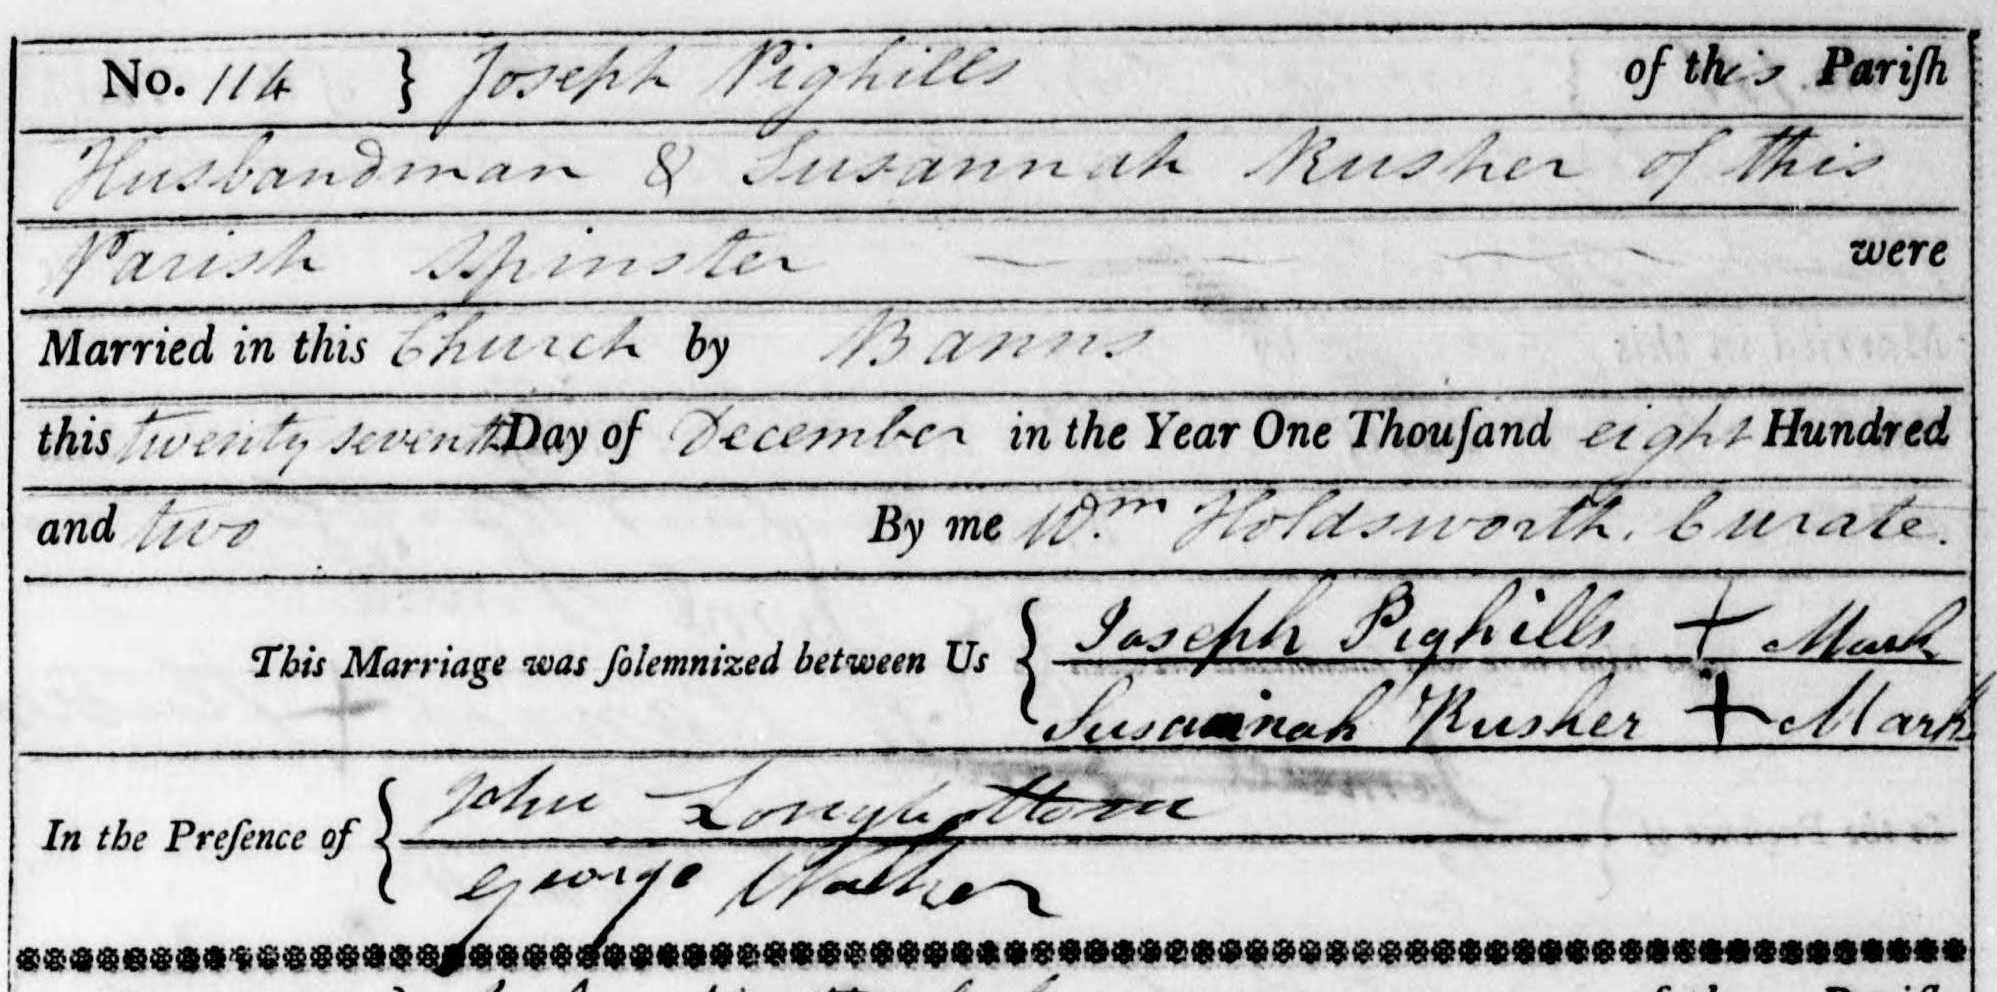 No. 114 } Joseph Pighills of this Pariſh
Husbandman & Susannah Rusher of this
Parish Spinster were
Married in this Church by Banns
this twenty seventh Day of December in the Year One Thouſand eight Hundred
and two By me Wm. Holdsworth. Curate.
This Marriage was ſolemnized between Us { Joseph Pighills + Mark
Susannah Rusher + Mark
In the Preſence of { John Longbottom
George Walker
of this Pariſh